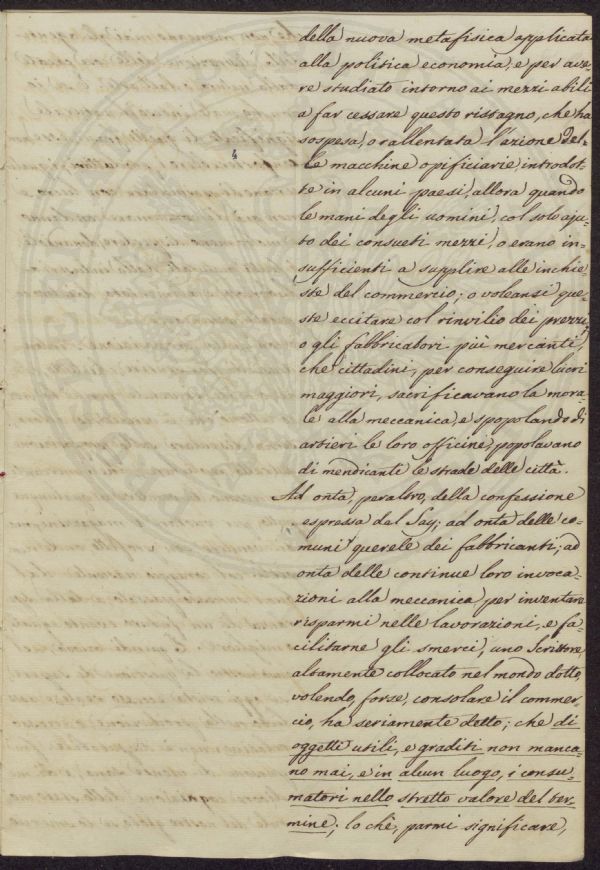 della nuova metafisica applicata
alla politica economia, e per ave
re studiato intorno ai mezzi abili
a far cessare questo ristagno, che ha
sospesa, o rallentata l'azione del-
le macchine opificiarie introdot-
te in alcuni paesi, allora quando
le mani degli uomini, col solo aju-
to dei consueti mezzi, o erano in-
sufficienti a supplire alle inchie-
ste del commercio; o voleansi que-
ste eccitare col rinvilio dei prezzi;
o gli fabbricatori più mercanti,
che cittadini, per conseguire lucri
maggiori, sacrificavano la mora-
le alla meccanica, e spopolando di
artieri le loro officine, popolavano
di mendicanti le strade delle città.
Ad onta, peraltro, della confessione
espressa dal Say; ad onta delle co-
muni querele dei fabbricanti; ad
onta delle continue loro invoca-
zioni alla meccanica per inventare
risparmi nelle lavorazioni, e fa-
cilitarne gli smerci, uno Scrittore
altamente collocato nel mondo dotto,
volendo, forse, consolare il commer-
cio, ha seriamente detto; che di
oggetti utili, e graditi non manca-
no mai, e in alcun luogo, i consu-
matori nello stretto valore del ter-
mine; lo chè, parmi significare,